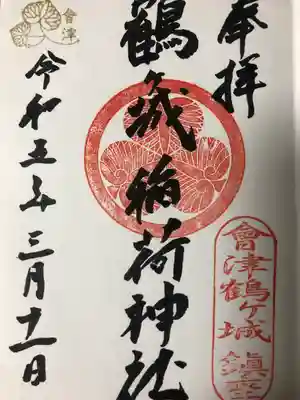 奉拝
鶴ヶ城稲荷神社
會津鶴ヶ城鎮座
令和五年三月十一日
會津